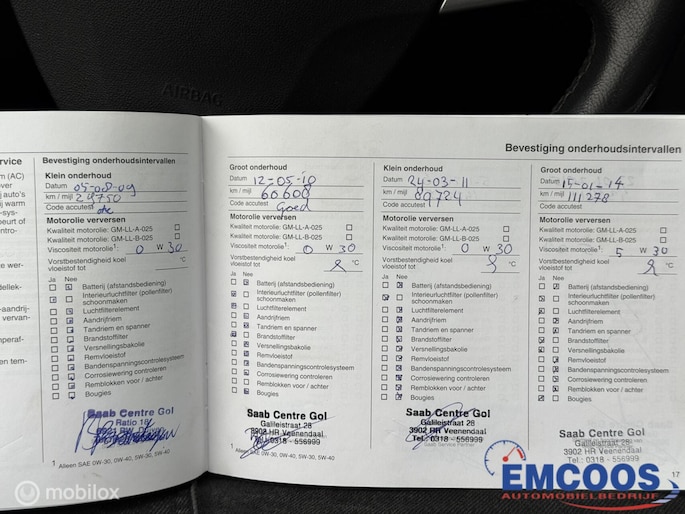 AIRBAG
Service
(AC)
Bevestiging onderhoudsintervallen
Klein onderhoud
Datum 05-08-09
km / mijl 29750
Code accutest
Motorolie verversen
Kwaliteit motorolie: GM-LL-A-025
Kwaliteit motorolie: GM-LL-B-025
Viscositeit motorolie1: 0 W 30
Vorstbestendigheid koel
vloeistof tot °C
Ja Nee
Batterij (afstandsbediening)
Interieurluchtfilter (pollenfilter)
schoonmaken
Luchtfilterelement
Aandrijfriem
Tandriem en spanner
Brandstoffilter
Versnellingsbakolie
Remvloeistof
Bandenspanningscontrolesysteem
Corrosiewering controleren
Remblokken voor / achter
Bougies
Saab Centre Gol
1 Alleen SAE 0W-30, 0W-40, 5W-30, 5W-40
Bevestiging onderhoudsintervallen
Groot onderhoud
Datum 12-05-10
km / mijl 60600
Code accutest Goed
Motorolie verversen
Kwaliteit motorolie: GM-LL-A-025
Kwaliteit motorolie: GM-LL-B-025
Viscositeit motorolie1: 0 W 30
Vorstbestendigheid koel
vloeistof tot °C
Ja Nee
Batterij (afstandsbediening)
Interieurluchtfilter (pollenfilter)
schoonmaken
Luchtfilterelement
Aandrijfriem
Tandriem en spanner
Brandstoffilter
Versnellingsbakolie
Remvloeistof
Bandenspanningscontrolesysteem
Corrosiewering controleren
Remblokken voor / achter
Bougies
Saab Centre Gol
Galileistraat 28
3902 HR Veenendaal
Tel.: 0318 - 556999
1 Alleen SAE 0W-30, 0W-40, 5W-30, 5W-40
Klein onderhoud
Datum 24-03-11
km / mijl 89724
Code accutest
Motorolie verversen
Kwaliteit motorolie: GM-LL-A-025
Kwaliteit motorolie: GM-LL-B-025
Viscositeit motorolie1: 0 W 30
Vorstbestendigheid koel
vloeistof tot °C
Ja Nee
Batterij (afstandsbediening)
Interieurluchtfilter (pollenfilter)
schoonmaken
Luchtfilterelement
Aandrijfriem
Tandriem en spanner
Brandstoffilter
Versnellingsbakolie
Remvloeistof
Bandenspanningscontrolesysteem
Corrosiewering controleren
Remblokken voor / achter
Bougies
Saab Centre Gol
Galileistraat 28
3902 HR Veenendaal
Tel.: 0318 - 556999
Saab Service Partner
Groot onderhoud
Datum 15-01-14
km / mijl 111278
Code accutest
Motorolie verversen
Kwaliteit motorolie: GM-LL-A-025
Kwaliteit motorolie: GM-LL-B-025
Viscositeit motorolie1: 5 W 30
Vorstbestendigheid koel
vloeistof tot °C
Ja Nee
Batterij (afstandsbediening)
Interieurluchtfilter (pollenfilter)
schoonmaken
Luchtfilterelement
Aandrijfriem
Tandriem en spanner
Brandstoffilter
Versnellingsbakolie
Remvloeistof
Bandenspanningscontrolesysteem
Corrosiewering controleren
Remblokken voor / achter
Bougies
Saab Centre Gol
Galileistraat 28
3902 HR Veenendaal
Tel.: 0318 - 556999
17
EMCOOS
AUTOMOBIELBEDRIJF
mobilox